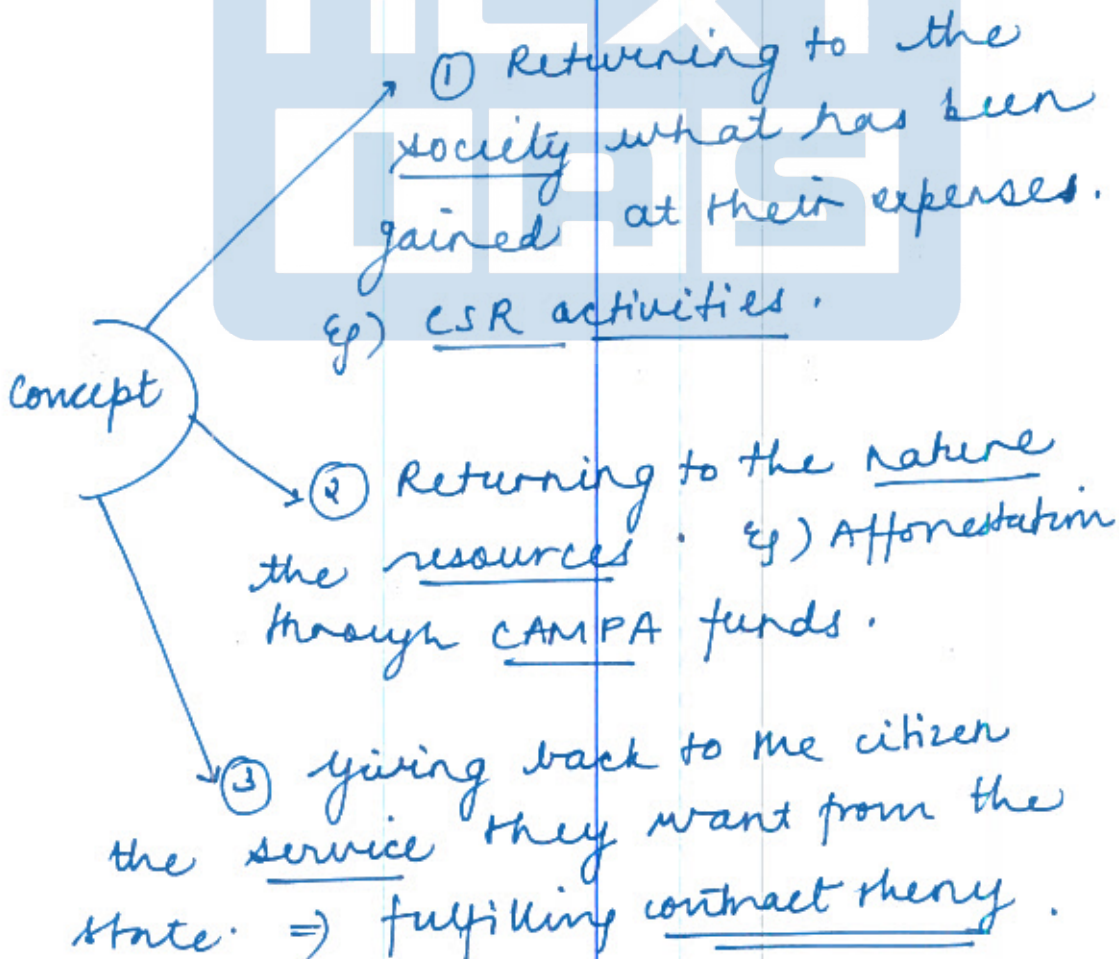 NEXT
IAS
① Returning to the
society what has been
gained at their expenses.
Eg) CSR activities.
Concept
② Returning to the nature
the resources. Eg) Afforestation
through CAMPA funds.
③ Giving back to the citizen
the service they want from the
state. ⇒ fulfilling contract theory.